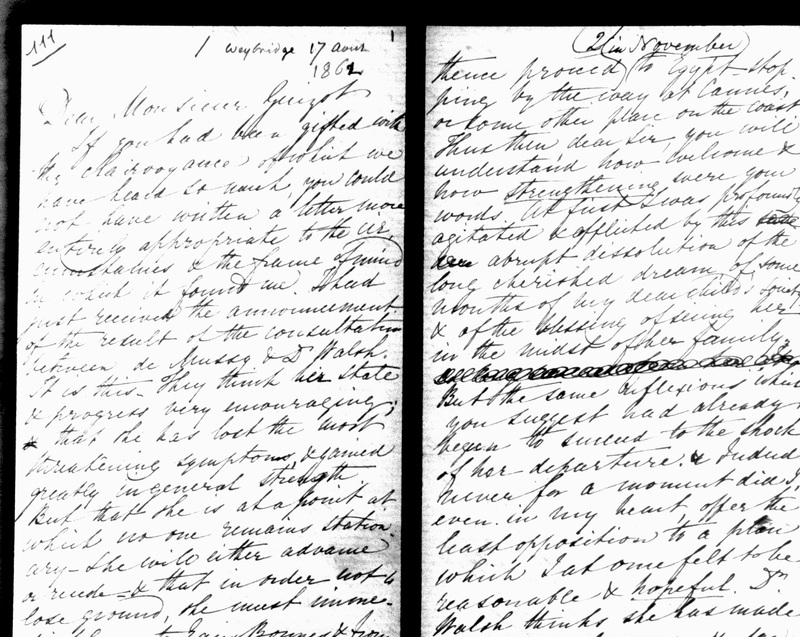 111
1 Weybridge 17 août
1862
Dear Monsieur Guizot
If you had been gifted with
the clairvoyance of which we
have heard so much, you could
not have written a letter more
entirely appropriate to the cir
cumstances & the frame of mind
in which it found me. I had
just received the announcement
of the result of the consultation
between de Mussy & Dr Walsh.
It is this. They think her state
& progress very encouraging;
& that she has lost the most
threatening symptoms, & gained
greatly in general strength.
But that she is at a point at
which no one remains station
ary - she will either advance
or recede - & that in order not to
lose ground, she must imme-
Bonnes &
(2) (in November)
thence proceed to Egypt - stop-
ping by the way at Cannes,
or some other place on the coast
Thus then, dear Sir, you will
understand how welcome &
how strengthening were your
words. At first I was profoundly
agitated & afflicted by this
abrupt dissolution of the
long cherished dream of some
months of my dear child's society
& of the blessing of seeing her
in the midst of her family.
But the same reflexions which
you suggest had already
begun to succeed to the shock
of her departure. & Indeed
never for a moment did I,
even in my heart, offer the
least opposition to a plan
which I at once felt to be
reasonable & hopeful. Dr
Walsh thinks she has made